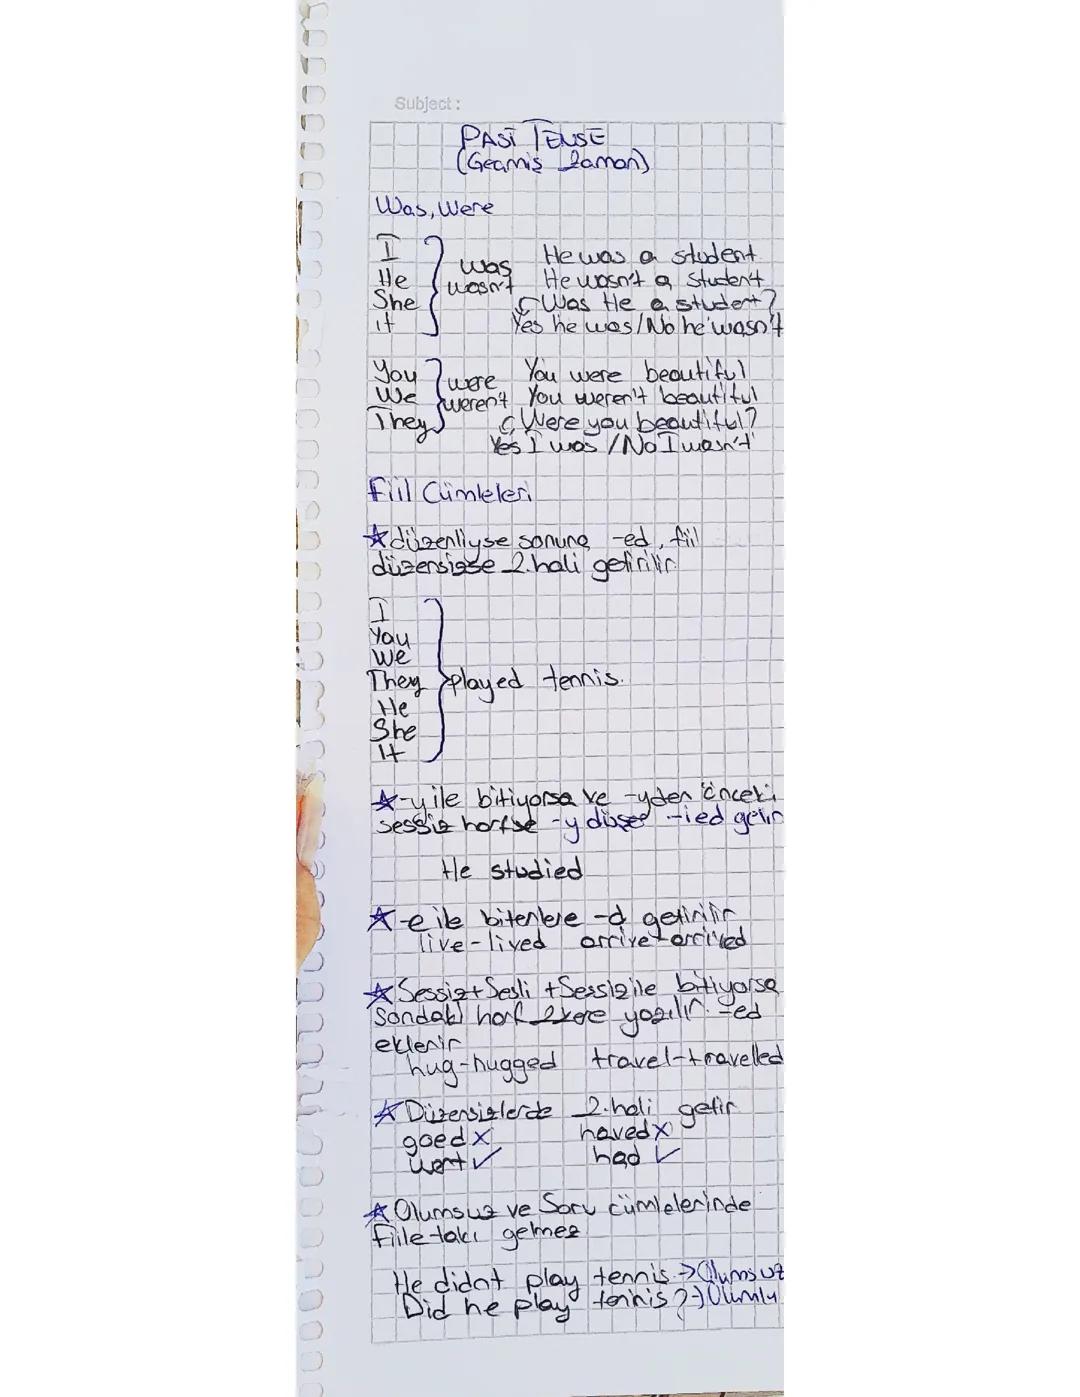 Subject:
PAST TENSE
(Geçmiş Zaman)
Was, Were
I
He
She
it
was
wasn't
He was a student
He wasn't a student
Was He a student?
Yes he was/No he wasn't
You
We
They
were
weren't
You were beautiful
You weren't beautiful
Were you beautiful?
Yes I was /No I wasn't
Fiil Cümleleri
düzenliyse sonuna -ed, fiil
düzensizse 2.hali getirilir
I
You
We
They
He
She
It
played tennis.
-y ile bitiyorsa ve -yden önceki
sessiz harfse -y düşer -ied gelir
He studied
-e ile bitenlere -d getirilir
live-lived arrive-arrived
Sessiz+Sesli+Sessizile bitiyorsa
Sondaki harf 2kere yazılır. -ed
eklenir
hug-hugged travel-travelled
Düzensizlerde 2.hali gelir
goed x haved x
went ✓ had ✓
Olumsuz ve Soru cümlelerinde
Fiile takı gelmez
He didnt play tennis.→Olumsuz
Did he play tennis?→Olumlu